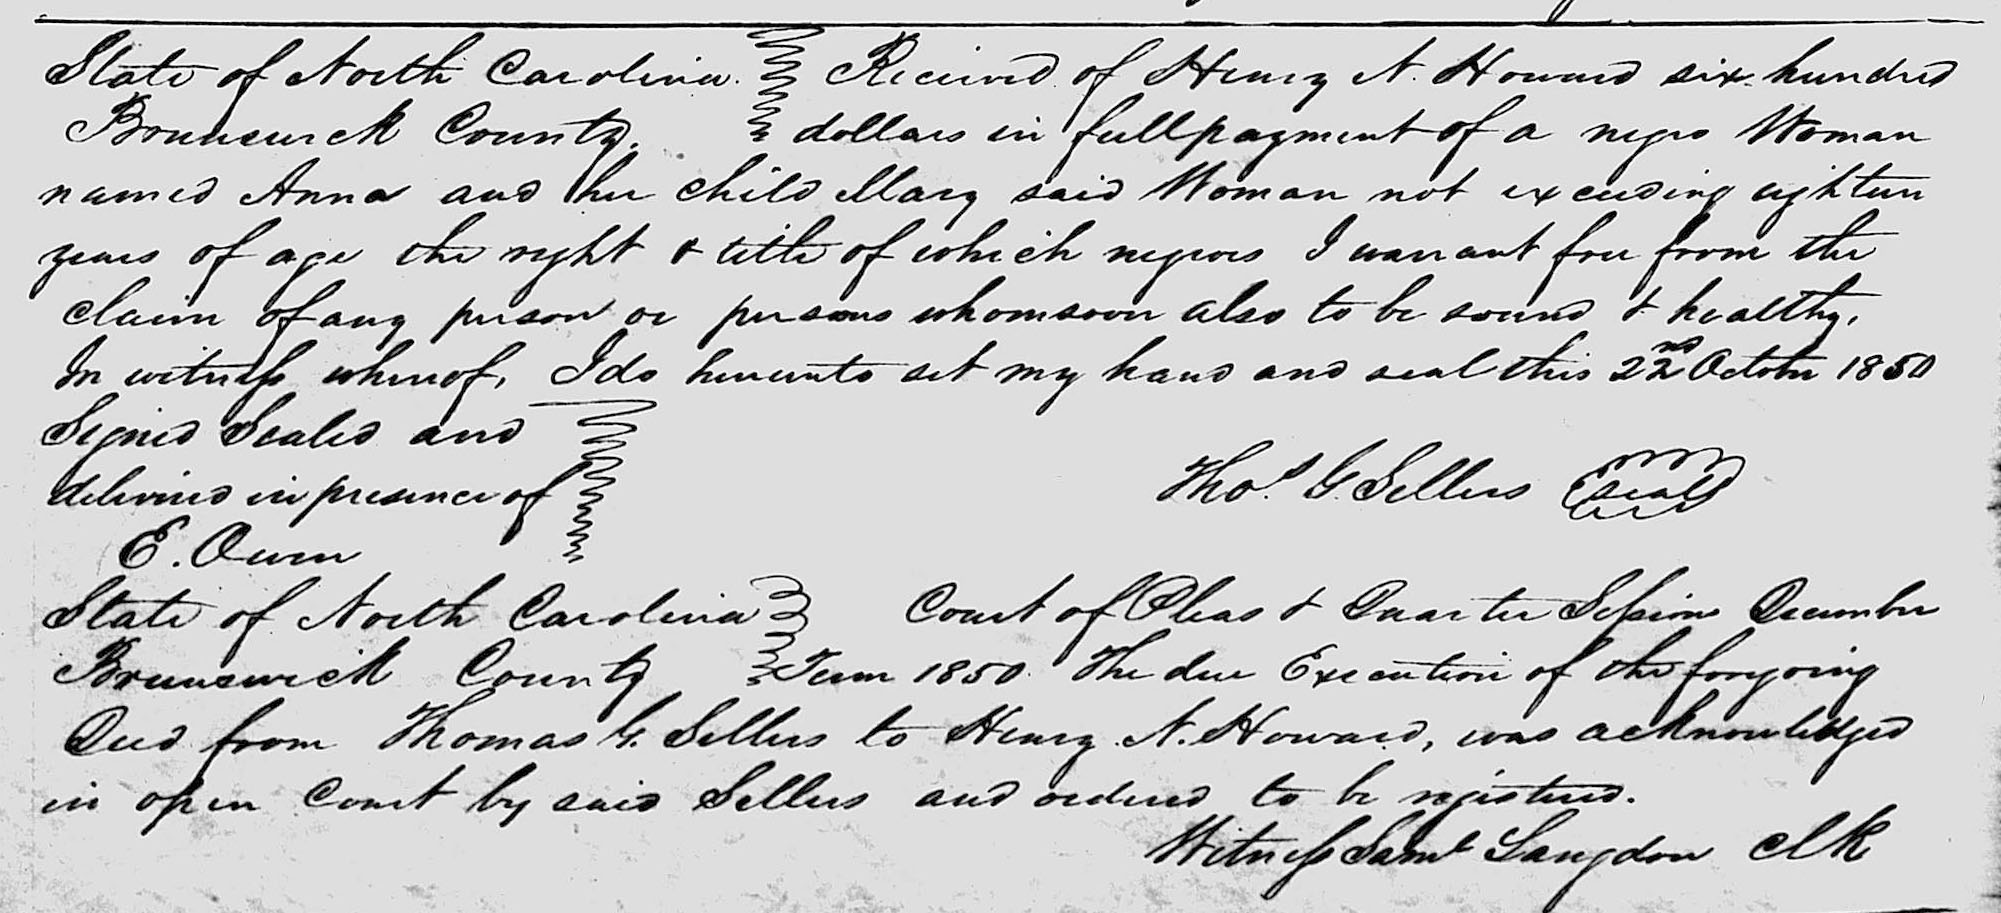 State of North Carolina. Received of Henry N. Howard six hundred
Brunswick County. dollars in full payment of a negro Woman
named Anna and her child Mary said Woman not exceeding eighteen
years of age the right & title of which negroes I warrant free from the
claim of any person or persons whomsoever also to be sound & healthy.
In witness whereof, I do hereunto set my hand and seal this 22nd October 1850
Signed Sealed and
delivered in presence of
Thos. G. Sellers seal
E. Owen
State of North Carolina Court of Pleas & Quarter Sessions December
Brunswick County Term 1850. The due Execution of the foregoing
Deed from Thomas G. Sellers to Henry N. Howard, was acknowledged
in open Court by said Sellers and ordered to be registered.
Witness Saml Langdon Clk